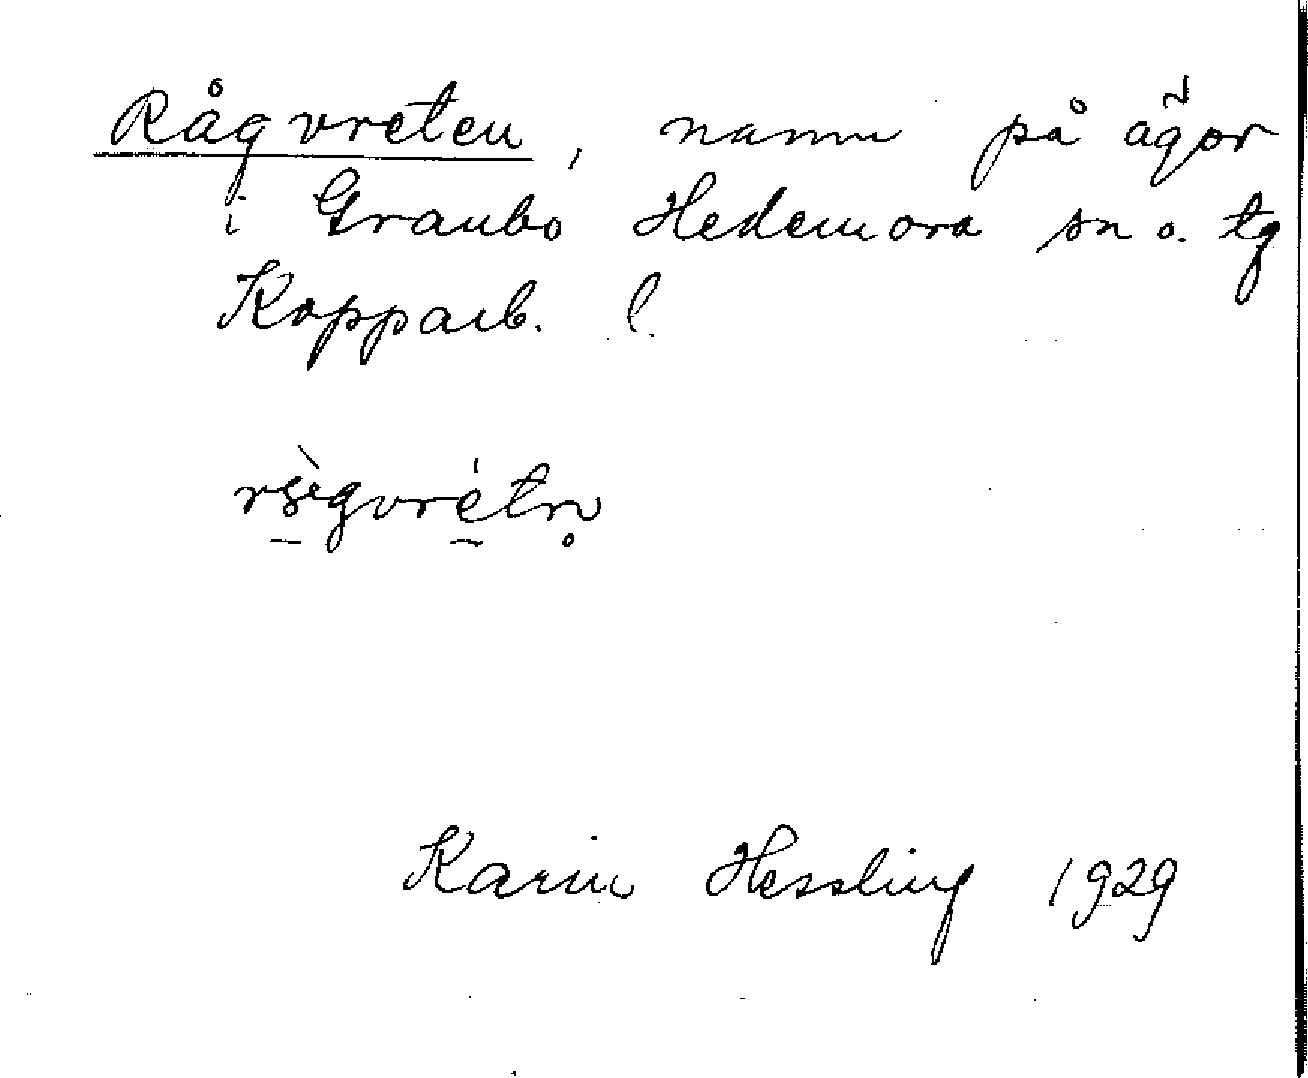 Rågvreten, namn på ägor
i Graubo Hedemora sn o. tg
Kopparb. l.
Karin Hessling 1929